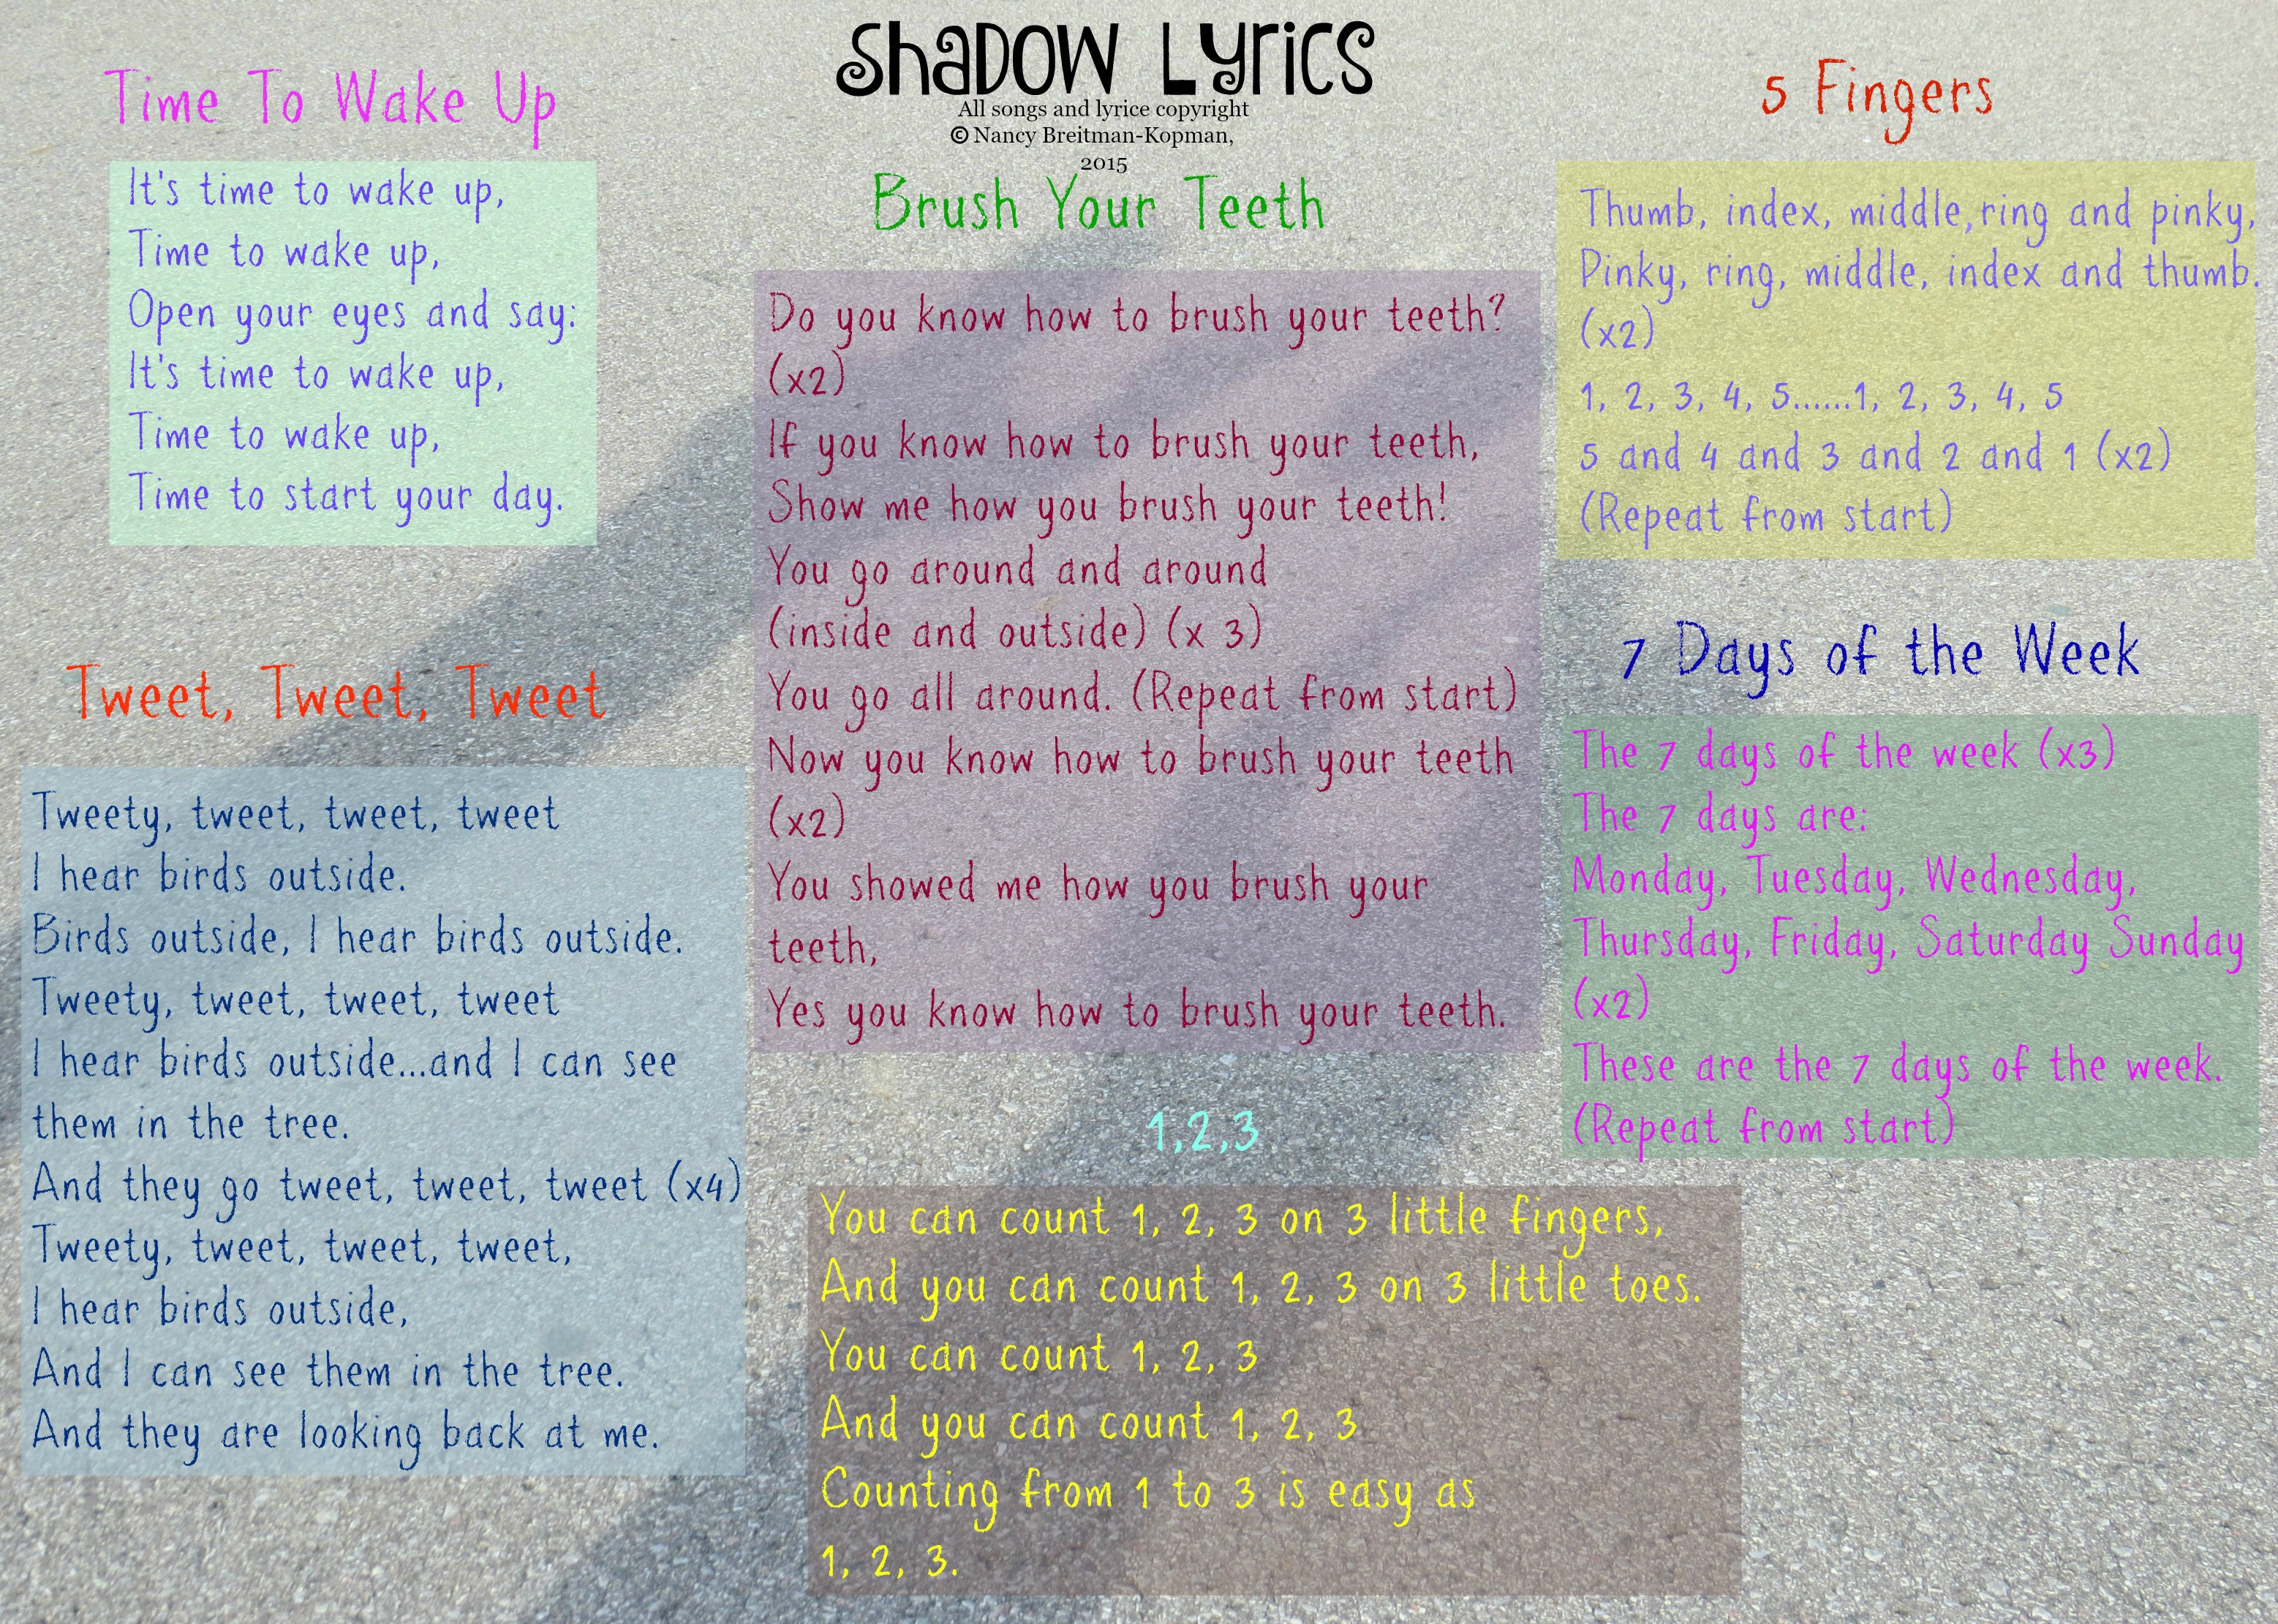 Shadow Lyrics
All songs and lyrice copyright
© Nancy Breitman-Kopman,
2015
Time To Wake Up
It's time to wake up,
Time to wake up,
Open your eyes and say:
It's time to wake up,
Time to wake up,
Time to start your day.
Tweet, Tweet, Tweet
Tweety, tweet, tweet, tweet
I hear birds outside.
Birds outside, I hear birds outside.
Tweety, tweet, tweet, tweet
I hear birds outside...and I can see
them in the tree.
And they go tweet, tweet, tweet (x4)
Tweety, tweet, tweet, tweet,
I hear birds outside,
And I can see them in the tree.
And they are looking back at me.
Brush Your Teeth
Do you know how to brush your teeth?
(x2)
If you know how to brush your teeth,
Show me how you brush your teeth!
You go around and around
(inside and outside) (x 3)
You go all around. (Repeat from start)
Now you know how to brush your teeth
(x2)
You showed me how you brush your
teeth,
Yes you know how to brush your teeth.
1,2,3
You can count 1, 2, 3 on 3 little fingers,
And you can count 1, 2, 3 on 3 little toes.
You can count 1, 2, 3
And you can count 1, 2, 3
Counting from 1 to 3 is easy as
1, 2, 3.
5 Fingers
Thumb, index, middle,ring and pinky,
Pinky, ring, middle, index and thumb.
(x2)
1, 2, 3, 4, 5......1, 2, 3, 4, 5
5 and 4 and 3 and 2 and 1 (x2)
(Repeat from start)
7 Days of the Week
The 7 days of the week (x3)
The 7 days are:
Monday, Tuesday, Wednesday,
Thursday, Friday, Saturday Sunday
(x2)
These are the 7 days of the week.
(Repeat from start)